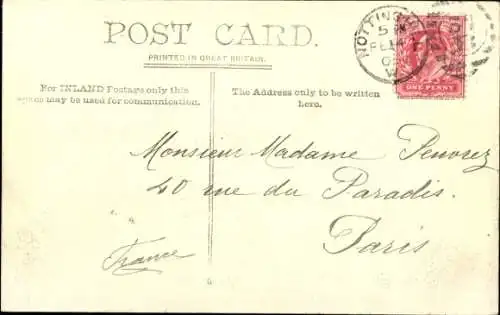 POST CARD.
PRINTED IN GREAT BRITAIN.
For INLAND Postage only this
space may be used for communication.
The Address only to be written
here.
NOTTINGHAM
ONE PENNY
Monsieur Madame
40 rue du Paradis.
Paris
France